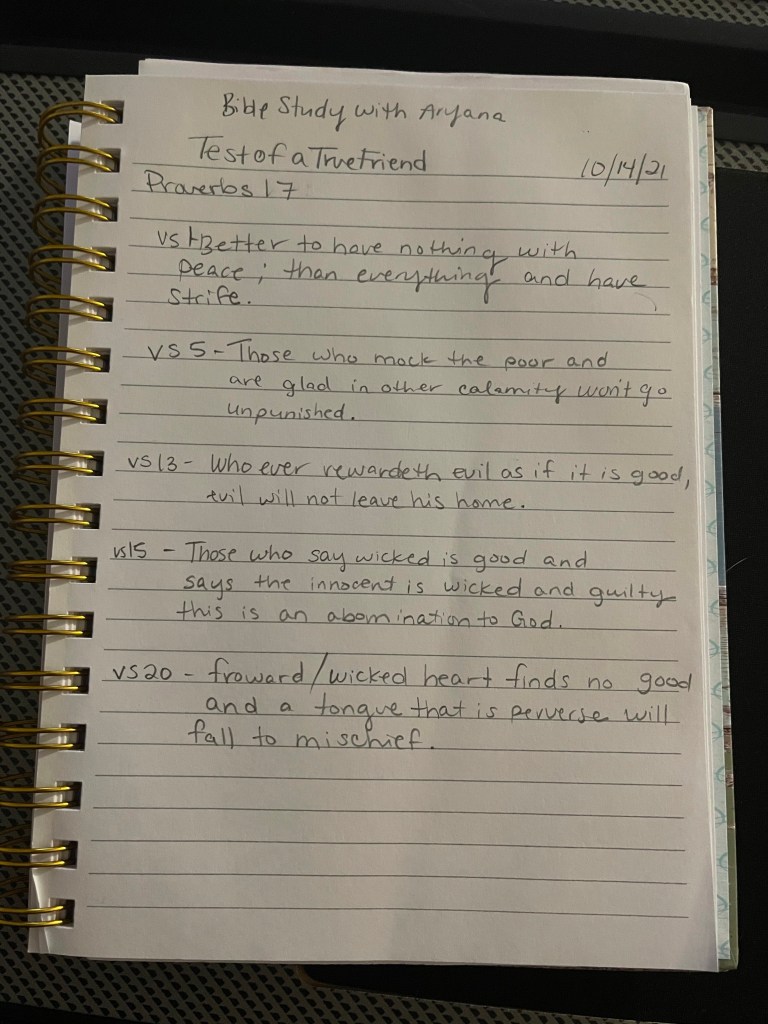 Bible Study with Aryana
Test of a True Friend 10/14/21
Proverbs 17
vs 1-Better to have nothing with
peace; than everything and have
strife.
vs 5-Those who mock the poor and
are glad in other calamity won't go
unpunished.
vs13- Who ever rewardeth evil as if it is good,
evil will not leave his home.
vs15 - Those who say wicked is good and
says the innocent is wicked and guilty
this is an abomination to God.
vs20 - froward/wicked heart finds no good
and a tongue that is perverse will
fall to mischief.